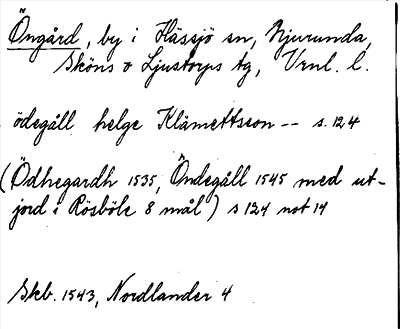 Öngård, by i Hässjö sn, Njurunda,
Sköns o Ljustorps tg, Vrnl. l.
ödegåll helge Klämettson -- s. 124
(Ödhegardh 1535, Öndegåll 1545 med ut-
jord i Rösböle 8 mål) s 124 not 14
Skb. 1543, Nordlander 4